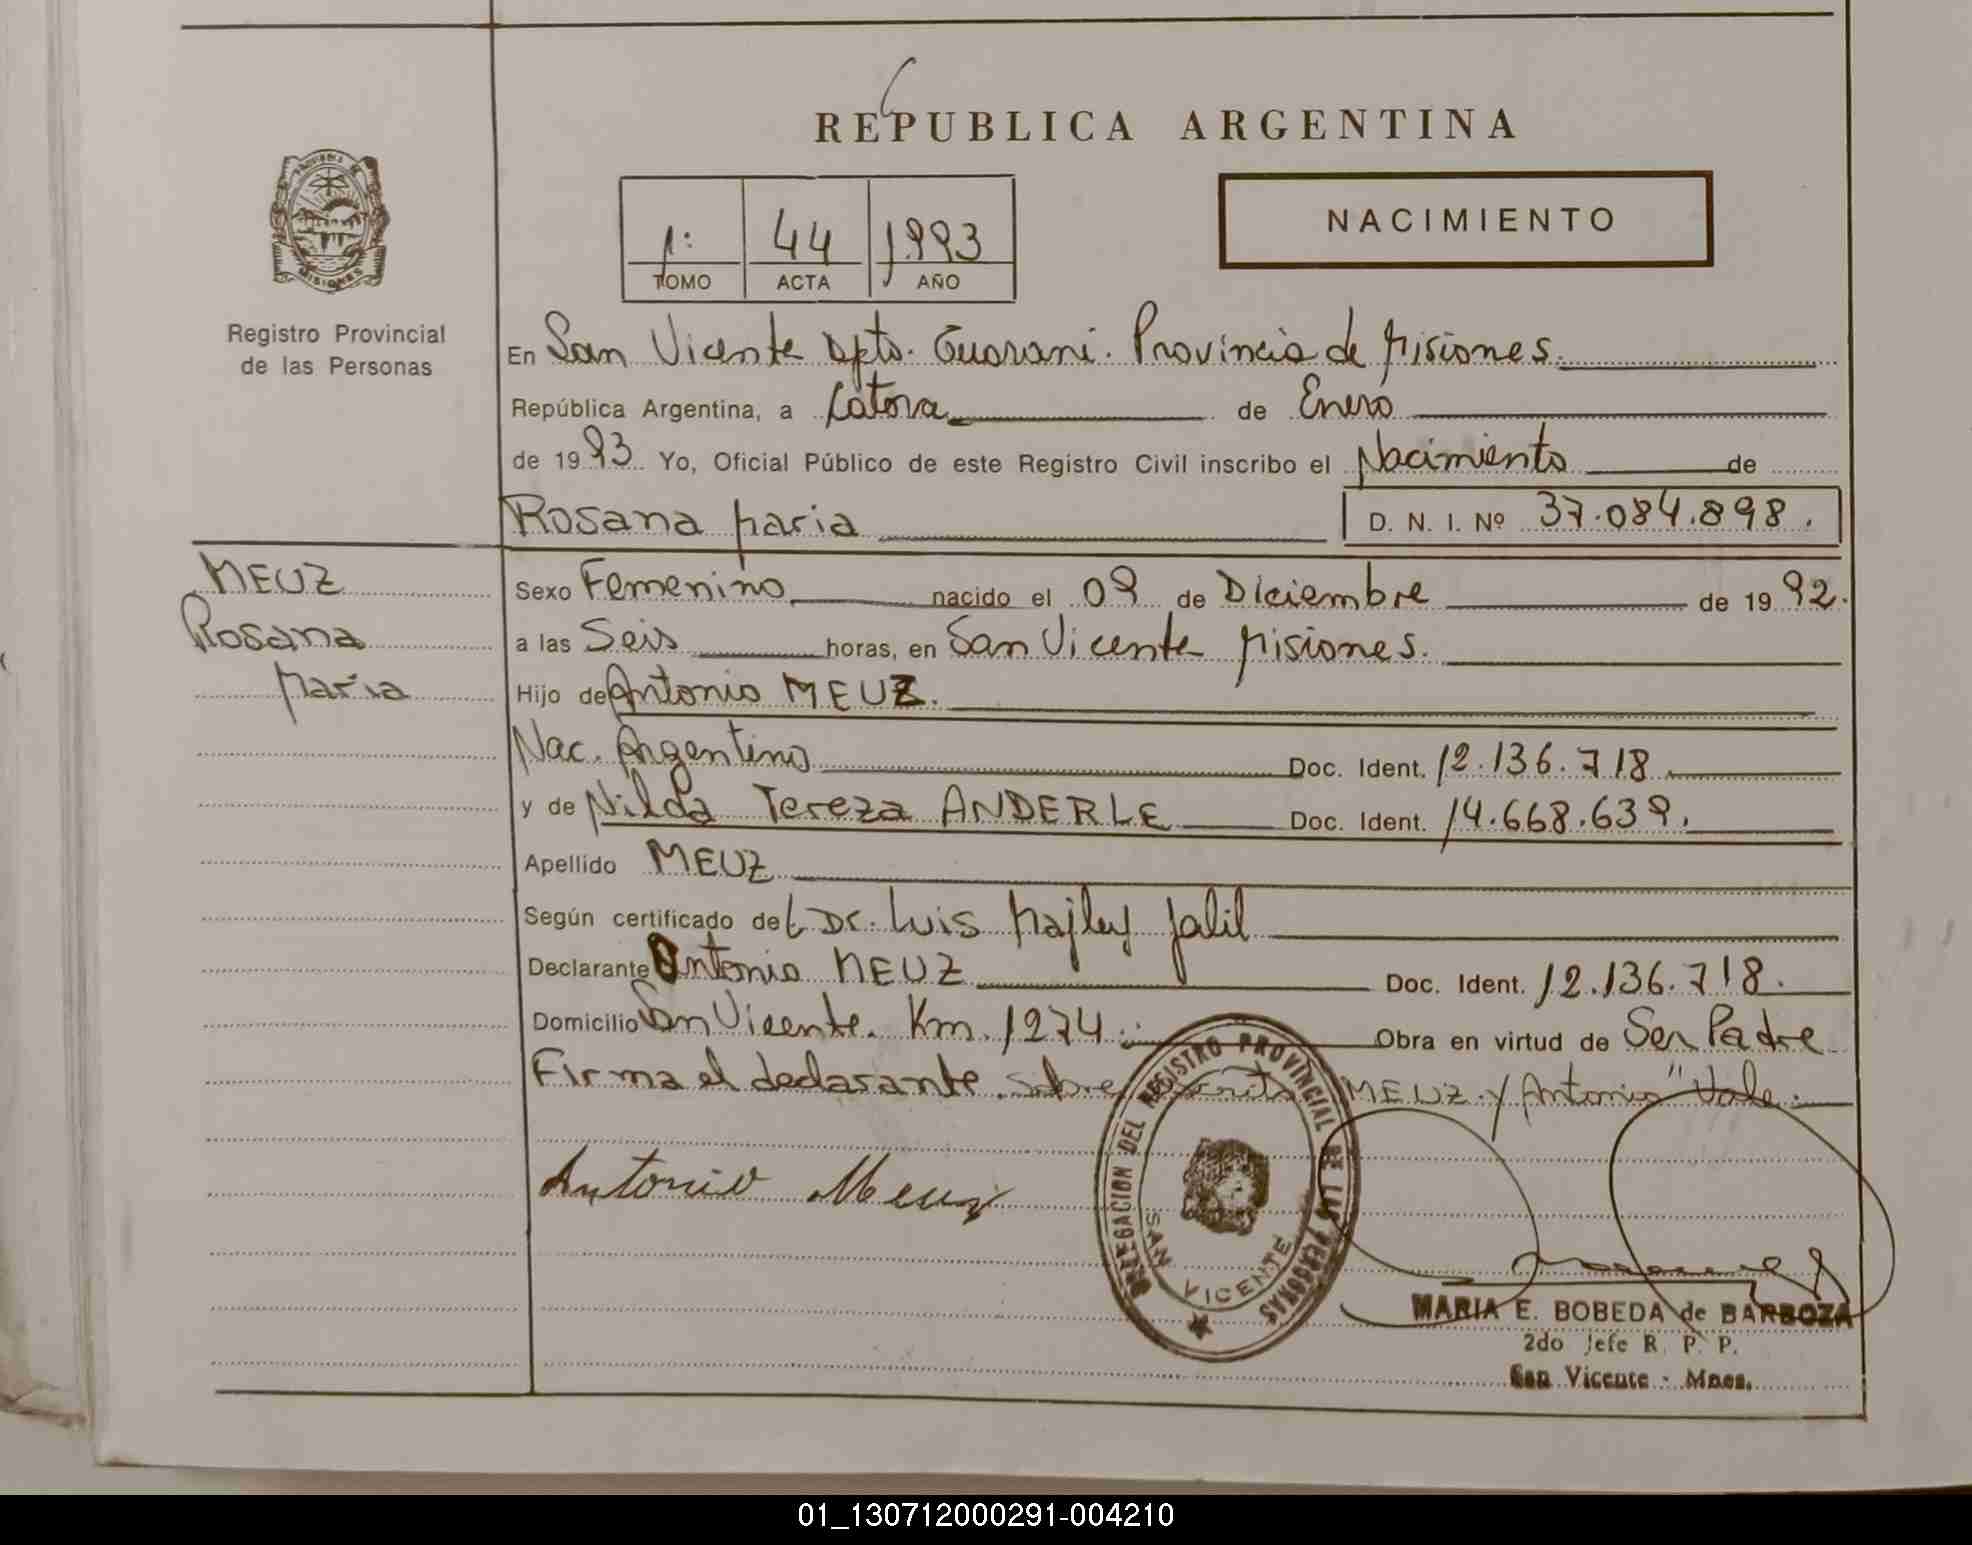 REPUBLICA ARGENTINA
NACIMIENTO
1º 44 1993
TOMO ACTA AÑO
Registro Provincial
de las Personas
En San Vicente Dpto. Guarani. Provincia de Misiones.
República Argentina, a Catorce de Enero
de 1993 Yo, Oficial Público de este Registro Civil inscribo el Nacimiento de
Rosana Maria D. N. I. Nº 37.084.898.
MEUZ
Rosana
Maria
Sexo Femenino nacido el 09 de Diciembre de 1992.
a las Seis horas, en San Vicente Misiones.
Hijo de Antonio MEUZ.
Nac. Argentino Doc. Ident. 12.136.718
y de Nilda Tereza ANDERLE Doc. Ident. 14.668.639.
Apellido MEUZ
Según certificado del Dr. Luis Jalil
Declarante Antonio MEUZ Doc. Ident. 12.136.718.
Domicilio San Vicente. Km. 1274 Obra en virtud de Ser Padre
Firma el declarante. Sobre escrito MEUZ y Antonio" Vale.
Antonio Meuz
DELEGACION DEL REGISTRO PROVINCIAL DE LAS PERSONAS
SAN VICENTE
MARIA E. BOBEDA de BARBOZA
2do Jefe R. P. P.
San Vicente - Mnes.
01_130712000291-004210